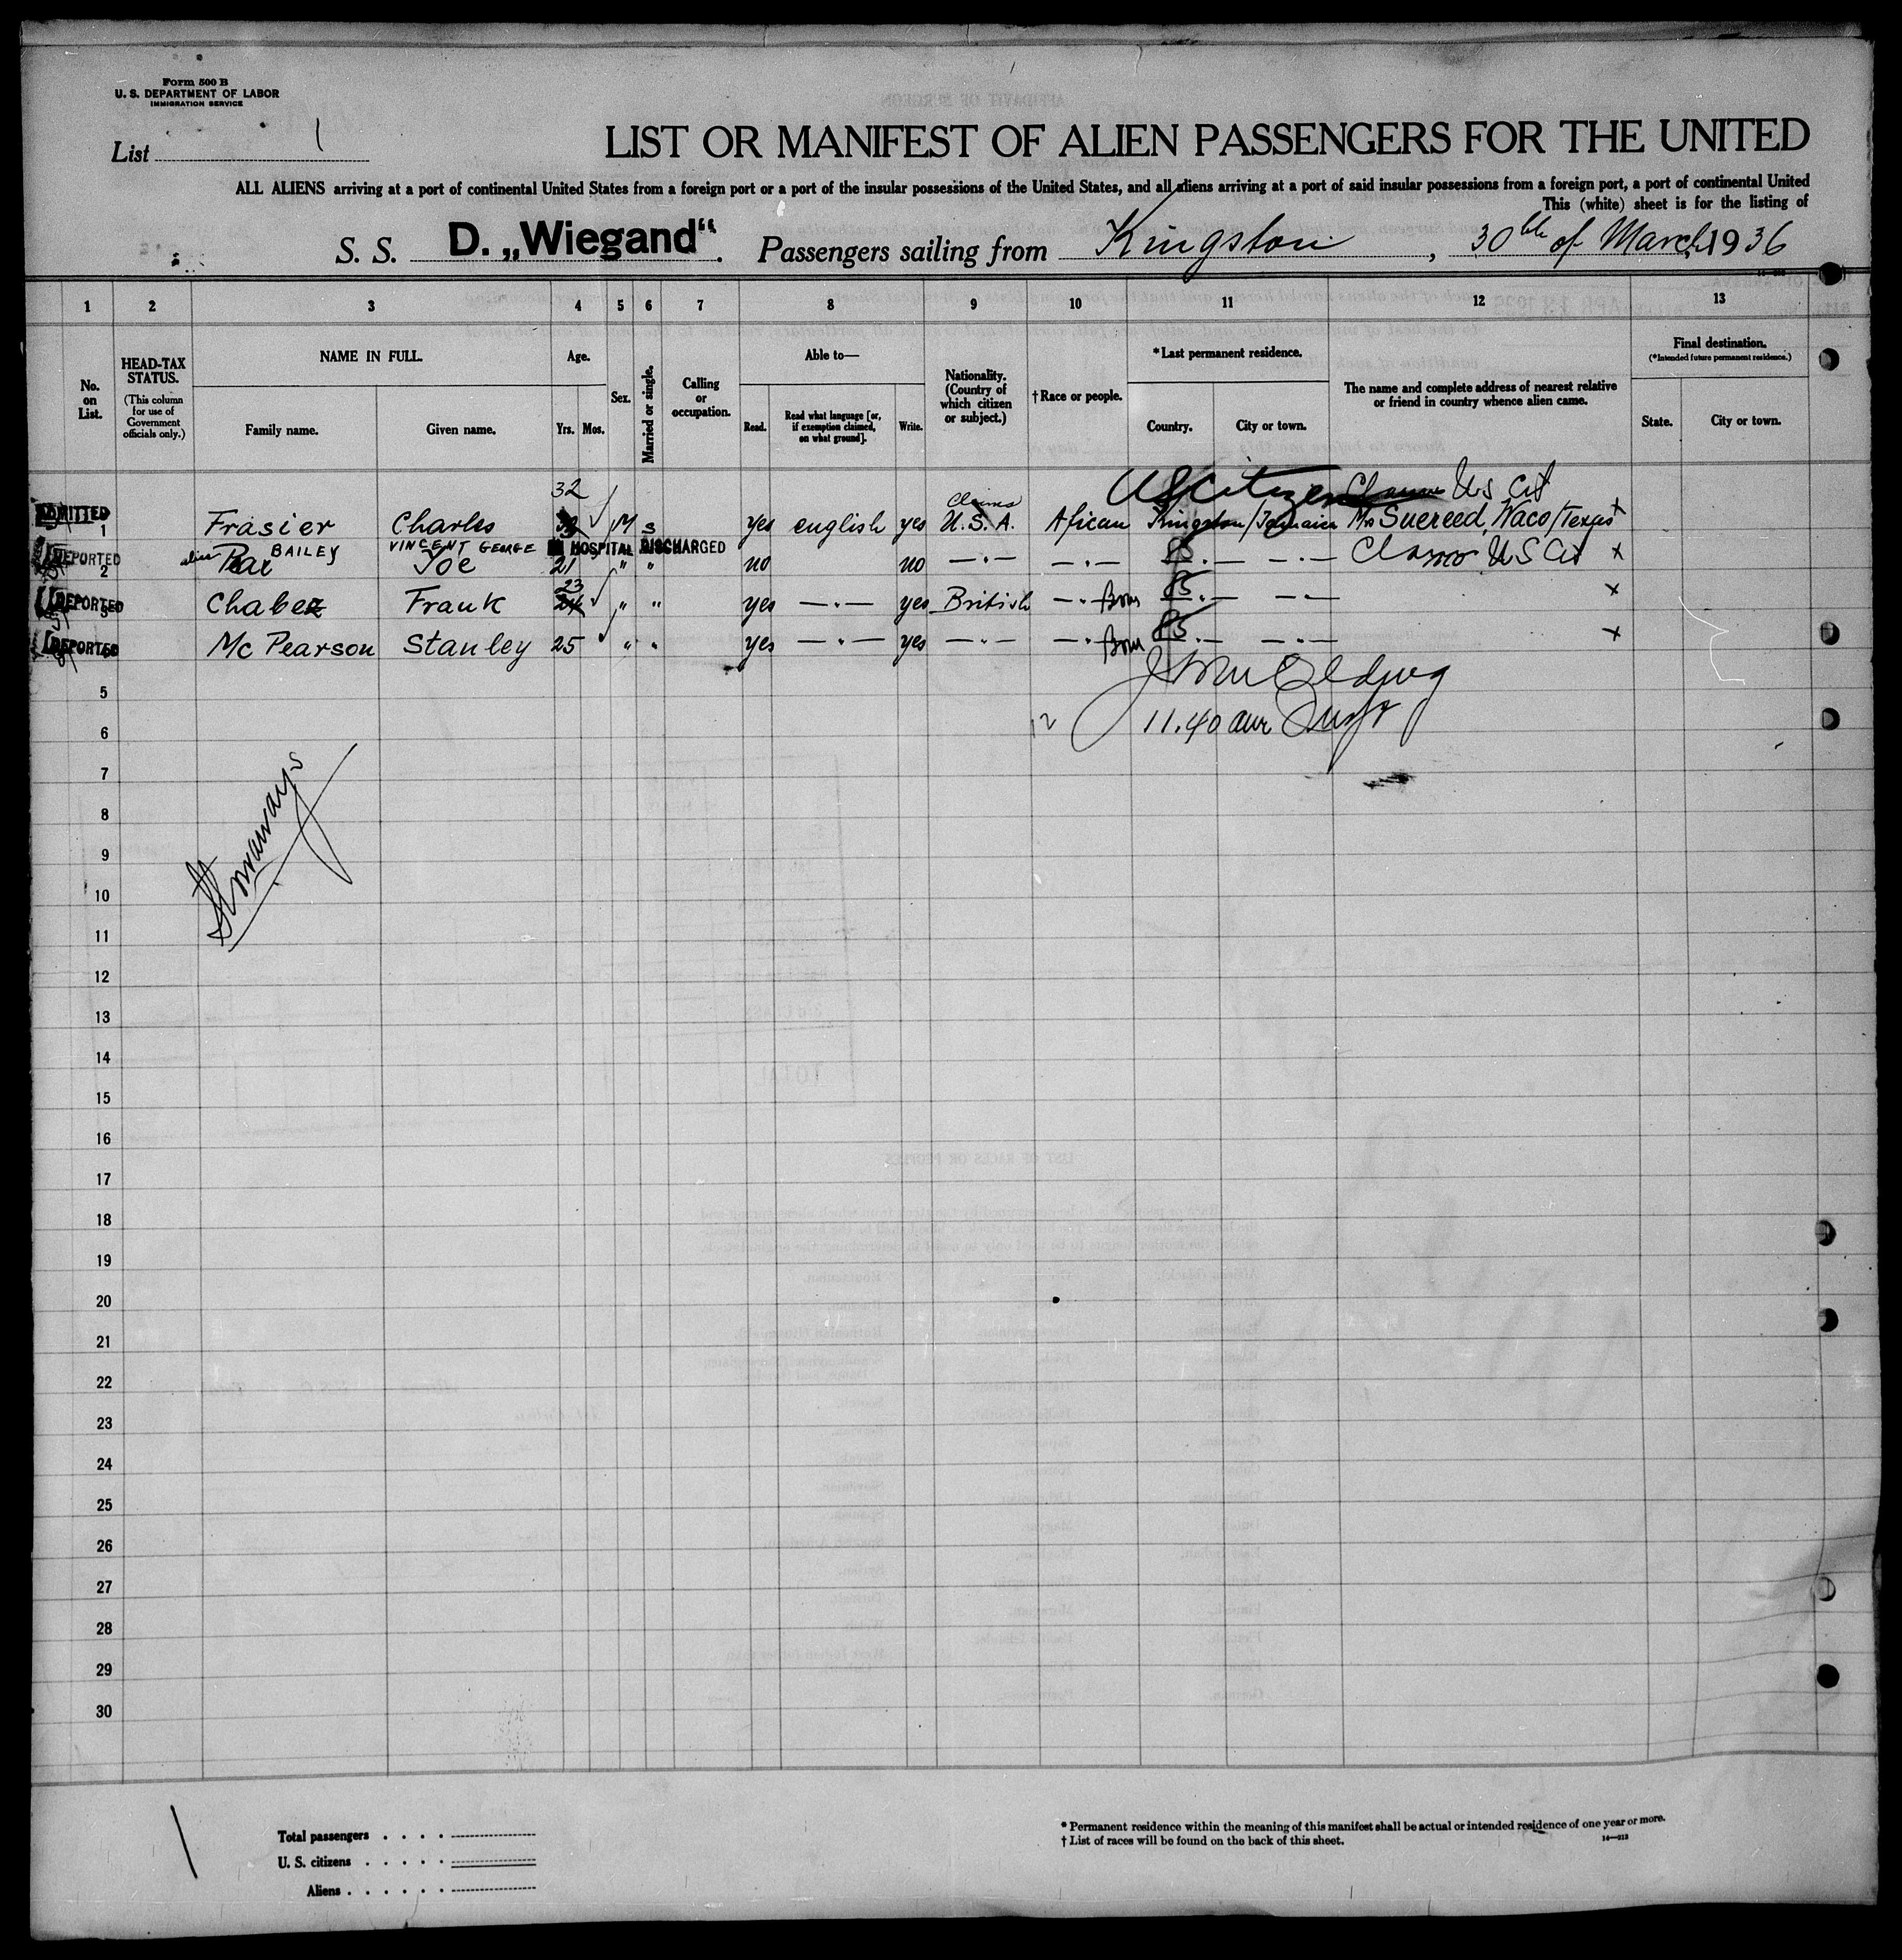 Form 500 B
U. S. DEPARTMENT OF LABOR
IMMIGRATION SERVICE
List 1
LIST OR MANIFEST OF ALIEN PASSENGERS FOR THE UNITED
ALL ALIENS arriving at a port of continental United States from a foreign port or a port of the insular possessions of the United States, and all aliens arriving at a port of said insular possessions from a foreign port, a port of continental United
This (white) sheet is for the listing of
S. S. D. „Wiegand“. Passengers sailing from Kingston, 30th of March, 1936
1 2 3 4 5 6 7 8 9 10 11 12 13
No. on List.
HEAD-TAX STATUS.
(This column for use of Government officials only.)
NAME IN FULL.
Family name. Given name.
Age.
Yrs. Mos.
Sex.
Married or single.
Calling or occupation.
Able to—
Read. Read what language [or, if exemption claimed, on what ground]. Write.
Nationality. (Country of which citizen or subject.)
† Race or people.
* Last permanent residence.
Country. City or town.
The name and complete address of nearest relative or friend in country whence alien came.
Final destination.
(* Intended future permanent residence.)
State. City or town.
32 US Citizen Claims US Cit
ADMITTED 1 Frasier Charles M s yes english yes Claims U.S.A. African Kingston/Jamaica Mrs Suereed, Waco/Texas x
DEPORTED 2 alias BAILEY VINCENT GEORGE IN HOSPITAL DISCHARGED
Joe 21 " " no no —.— —.— —.— —.— Claims US Cit x
DEPORTED 3 Chabez Frank 23 24 " " yes —.— yes British —.— —.— x
DEPORTED Mc Pearson Stanley 25 " " yes —.— yes —.— —.— —.— —.— x
5
6 12 11.40 am
7
Stowaways
8
9
10
11
12
13
14
15
16
17
18
19
20
21
22
23
24
25
26
27
28
29
30
Total passengers . . . .
U. S. citizens . . . . .
Aliens . . . . . .
* Permanent residence within the meaning of this manifest shall be actual or intended residence of one year or more.
† List of races will be found on the back of this sheet.
14—212